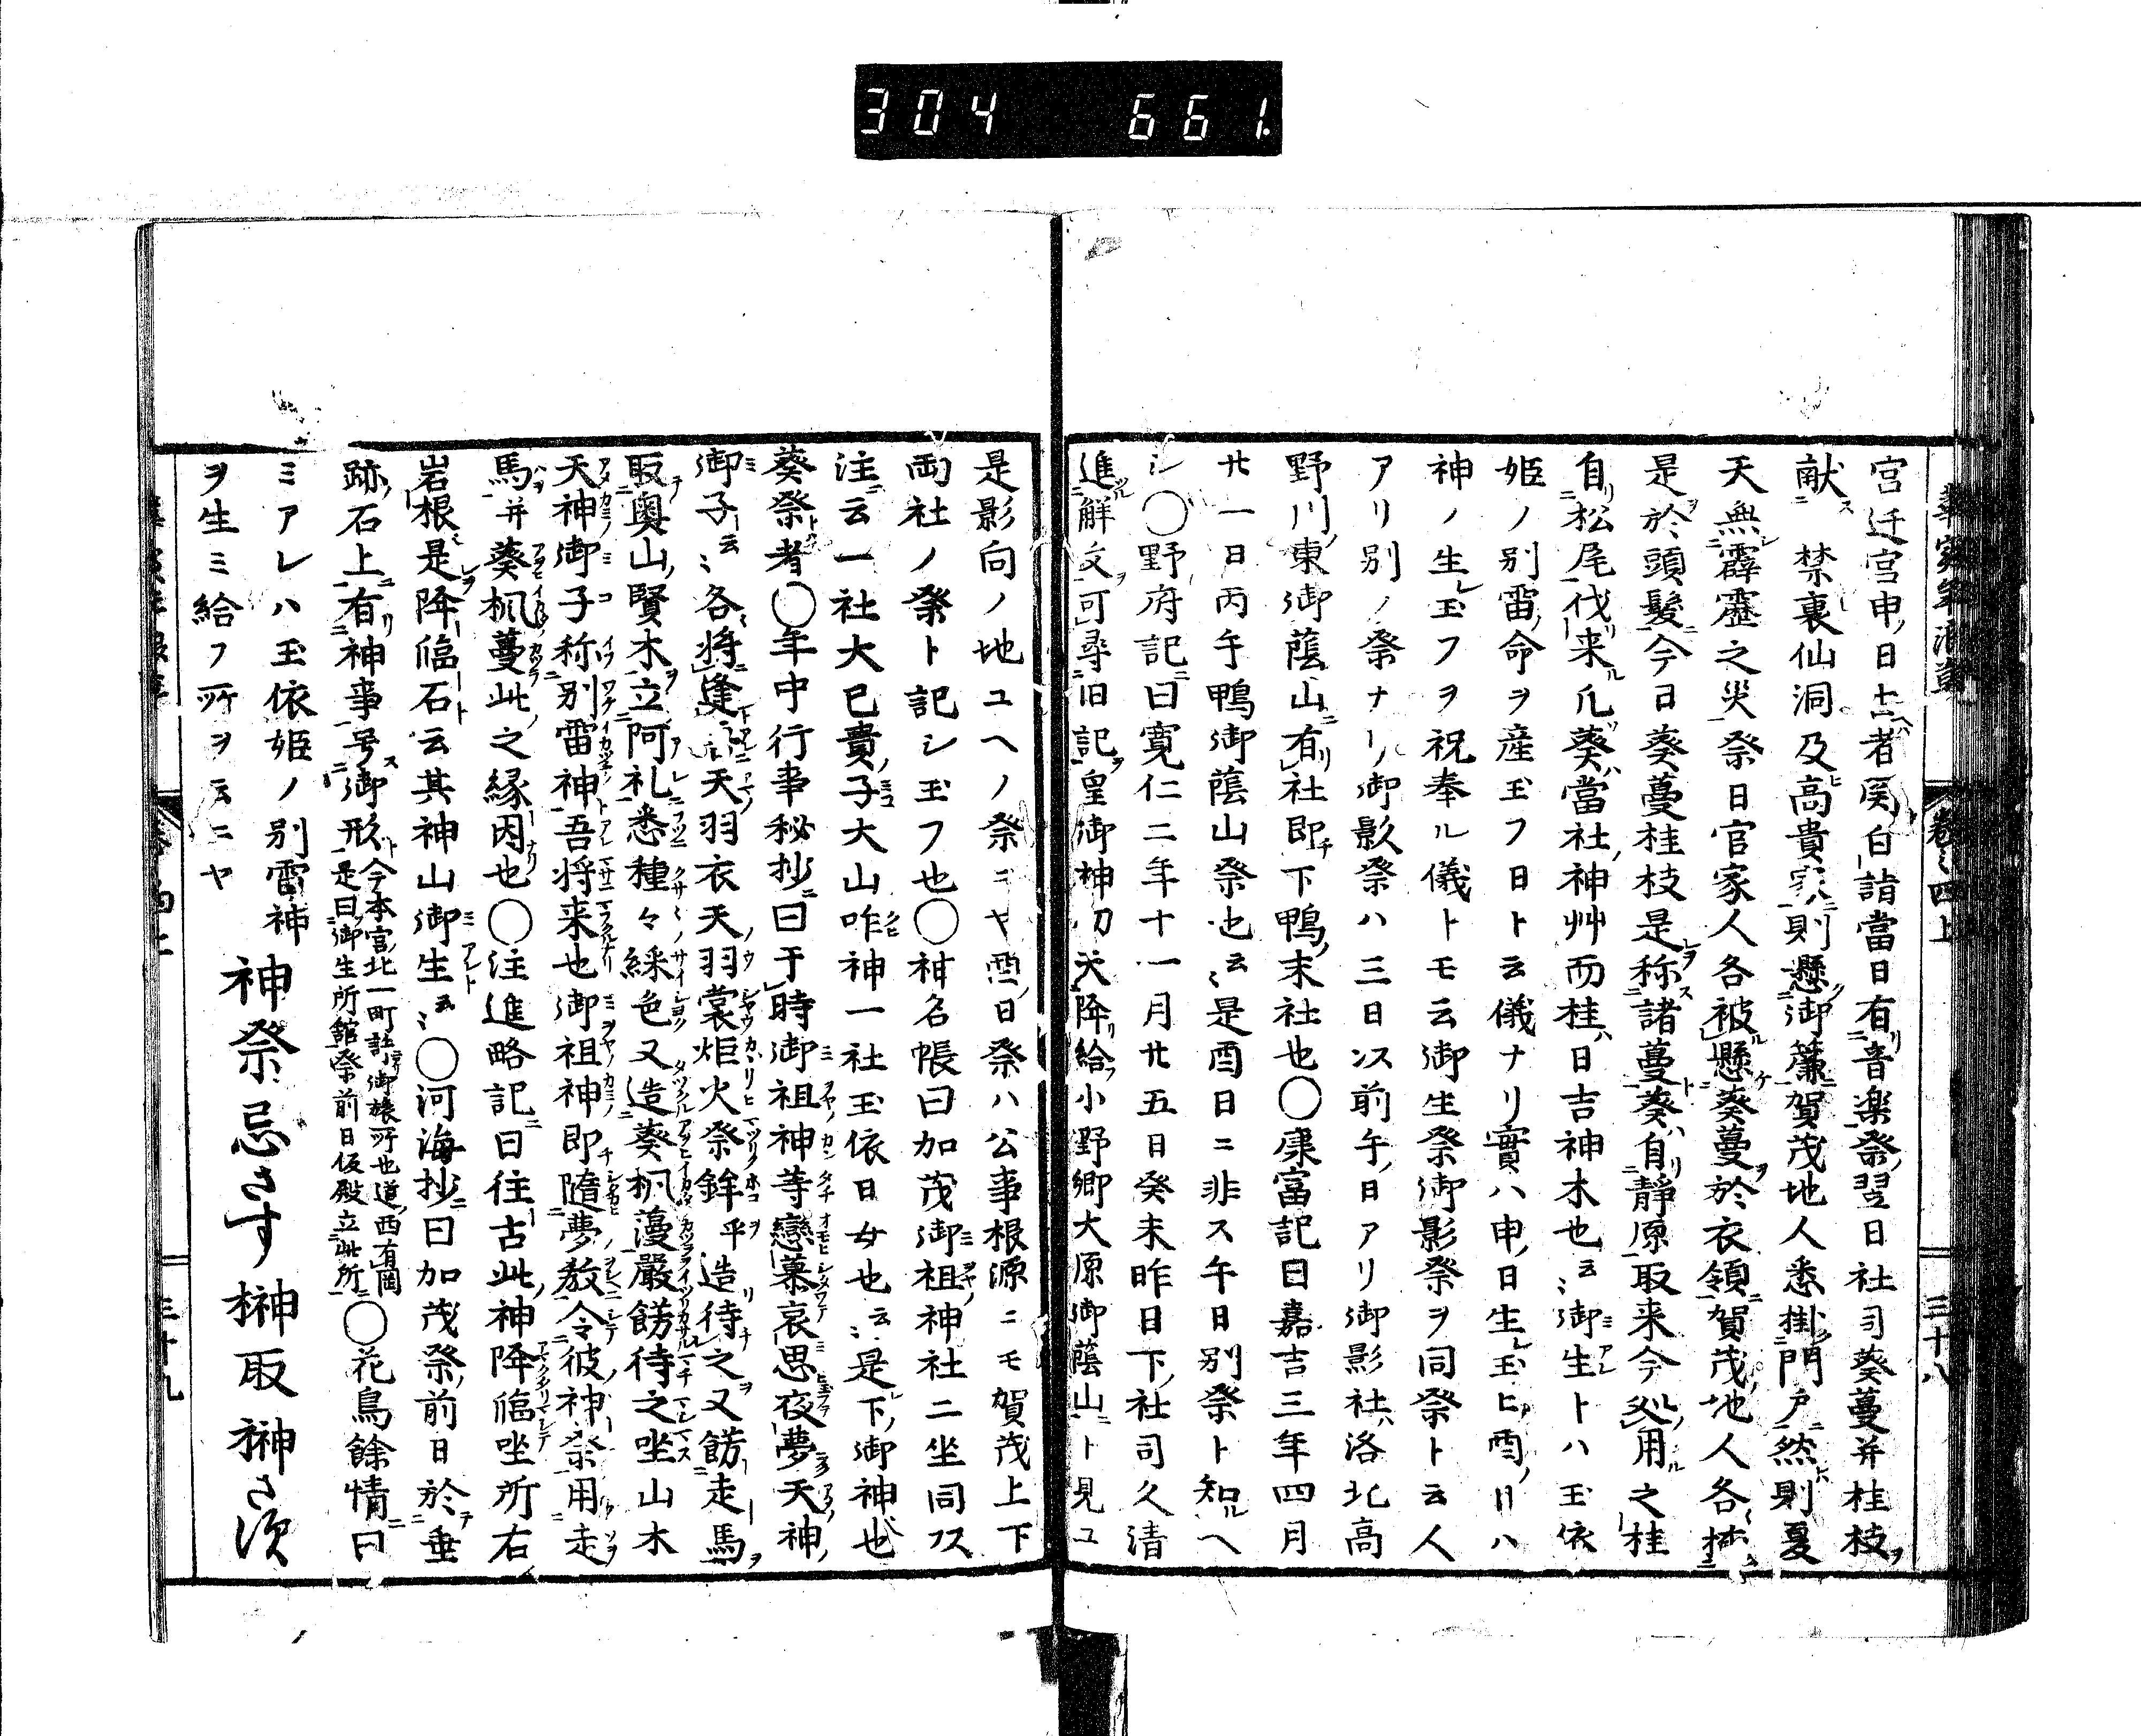 304 661
卷之四上
三十八
宮迁宮申ノ日土者関白詣當日有音楽祭ノ翌日社司葵蔓并桂枝ヲ
献ス禁裏仙洞及ヒ高貴家ニ則懸御簾ニ賀茂地人悉掛門戸ニ然則夏
天無霹靂之災祭日官家人各被懸葵蔓ヲ於衣領ニ賀茂ノ地人各
是ヲ於頭髪ニ今日葵蔓桂枝是ヲ称ス諸蔓ト葵ハ自リ静原取来今所用之桂
自リ松尾伐来ル凡葵ハ當社ノ神艸而桂ハ日吉神木也云〻御生トハ玉依
姫ノ別雷ノ命ヲ産玉フ日ト云儀ナリ實ハ申ノ日生レ玉ヒ酉ノ日ハ
神ノ生レ玉フヲ祝奉ル儀トモ云御生祭御影祭ヲ同祭ト云人
アリ別ノ祭ナリ御影祭ハ三日以前午ノ日アリ御影社ハ洛北高
野川ノ東御蔭山ニ有リ社即チ下鴨ノ末社也○康富記曰嘉吉三年四月
廿一日丙午鴨御蔭山祭也云〻是酉日ニ非ス午日別祭ト知ルヘ
シ○野府記ニ曰寛仁二年十一月廿五日癸未昨日下ノ社司久清
進ル解文ヲ可尋旧記ヲ皇御神初天降リ給フ小野郷大原御蔭山ニト見ユ
是影向ノ地ユヘノ祭ニヤ酉ノ日祭ハ公事根源ニモ賀茂上下
両社ノ祭ト記シ玉フ也○神名帳曰加茂御祖神社二坐同フス
注ニ云一社大已貴ノ子大山咋神一社玉依日女也云〻是下ノ御神也
葵祭者○年中行事秘抄ニ曰于時御祖神等戀慕哀思夜夢天神ノ
御子云〻各将逢吾天羽衣天ノ羽裳炬火祭鉾ヲ造リ待之ヲ又餝走馬ヲ
取奥山ノ賢木ヲ立阿礼悉種々綵色又造葵楓蘰嚴餝待之坐山木
天神御子称別雷神ト吾将来也御祖神即チ隨夢教令彼神ノ祭用走
馬并葵楓蔓此之縁因也○注進略記ニ曰往古此ノ神降臨坐所右
岩根是降臨石ト云其神山御生云〻○河海抄ニ曰加茂祭ノ前日於垂
跡ノ石上ニ有リ神事号ス御形ト今本宮ノ北一町許御旅所也道ノ西有岡
是曰御生所館祭前日仮殿立此所ニ○花鳥餘情ニ曰
ミアレハ玉依姫ノ別雷神
ヲ生ミ給フ所ヲ云ニヤ
神祭忌さす榊取榊さ須
三十九